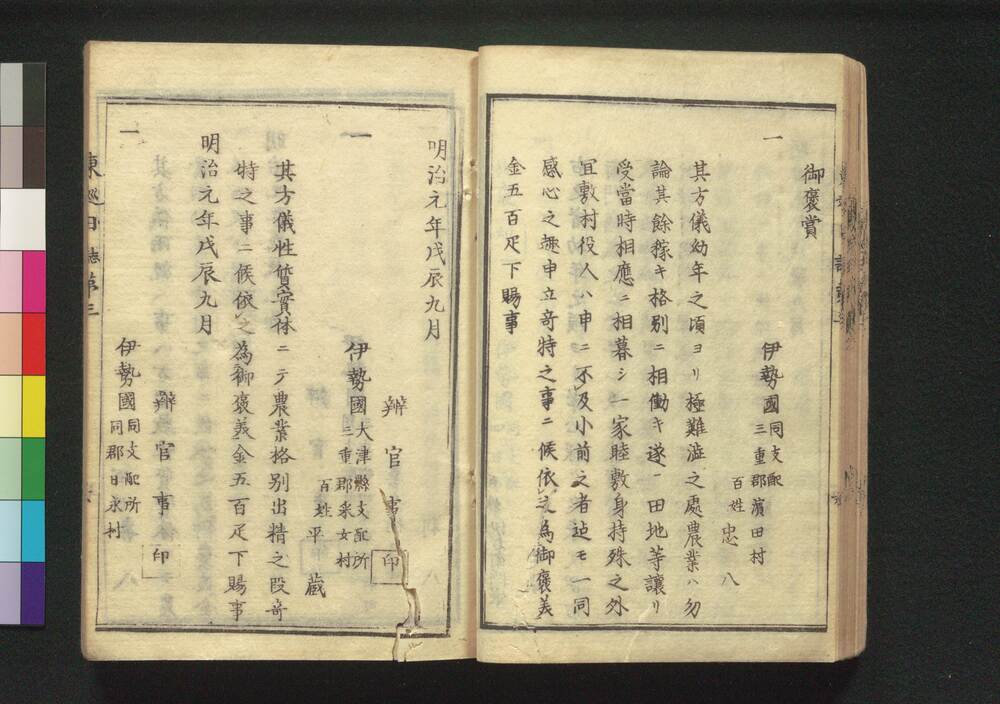 御褒賞
一
伊勢國同支配
三重郡濱田村
百姓 忠八
其方儀幼年之頃ヨリ極難澁之處農業ハ勿
論其餘稼キ格別ニ相働キ遂ニ田地等讓リ
受當時相應ニ相暮シ一家睦敷身持殊之外
宜敷村役人ハ申ニ不及小前之者迠モ一同
感心之趣申立竒特之事ニ候依之為御褒美
金五百疋下賜事
明治元年戊辰九月
辨官事 印
一
伊勢國大津縣支配所
三重郡采女村
百姓 平藏
其方儀性質實体ニテ農業格別出精之段竒
特之事ニ候依之為御褒義金五百疋下賜事
明治元年戊辰九月
辨官事 印
一
伊勢國同支配所
同郡日永村
東巡日誌第三